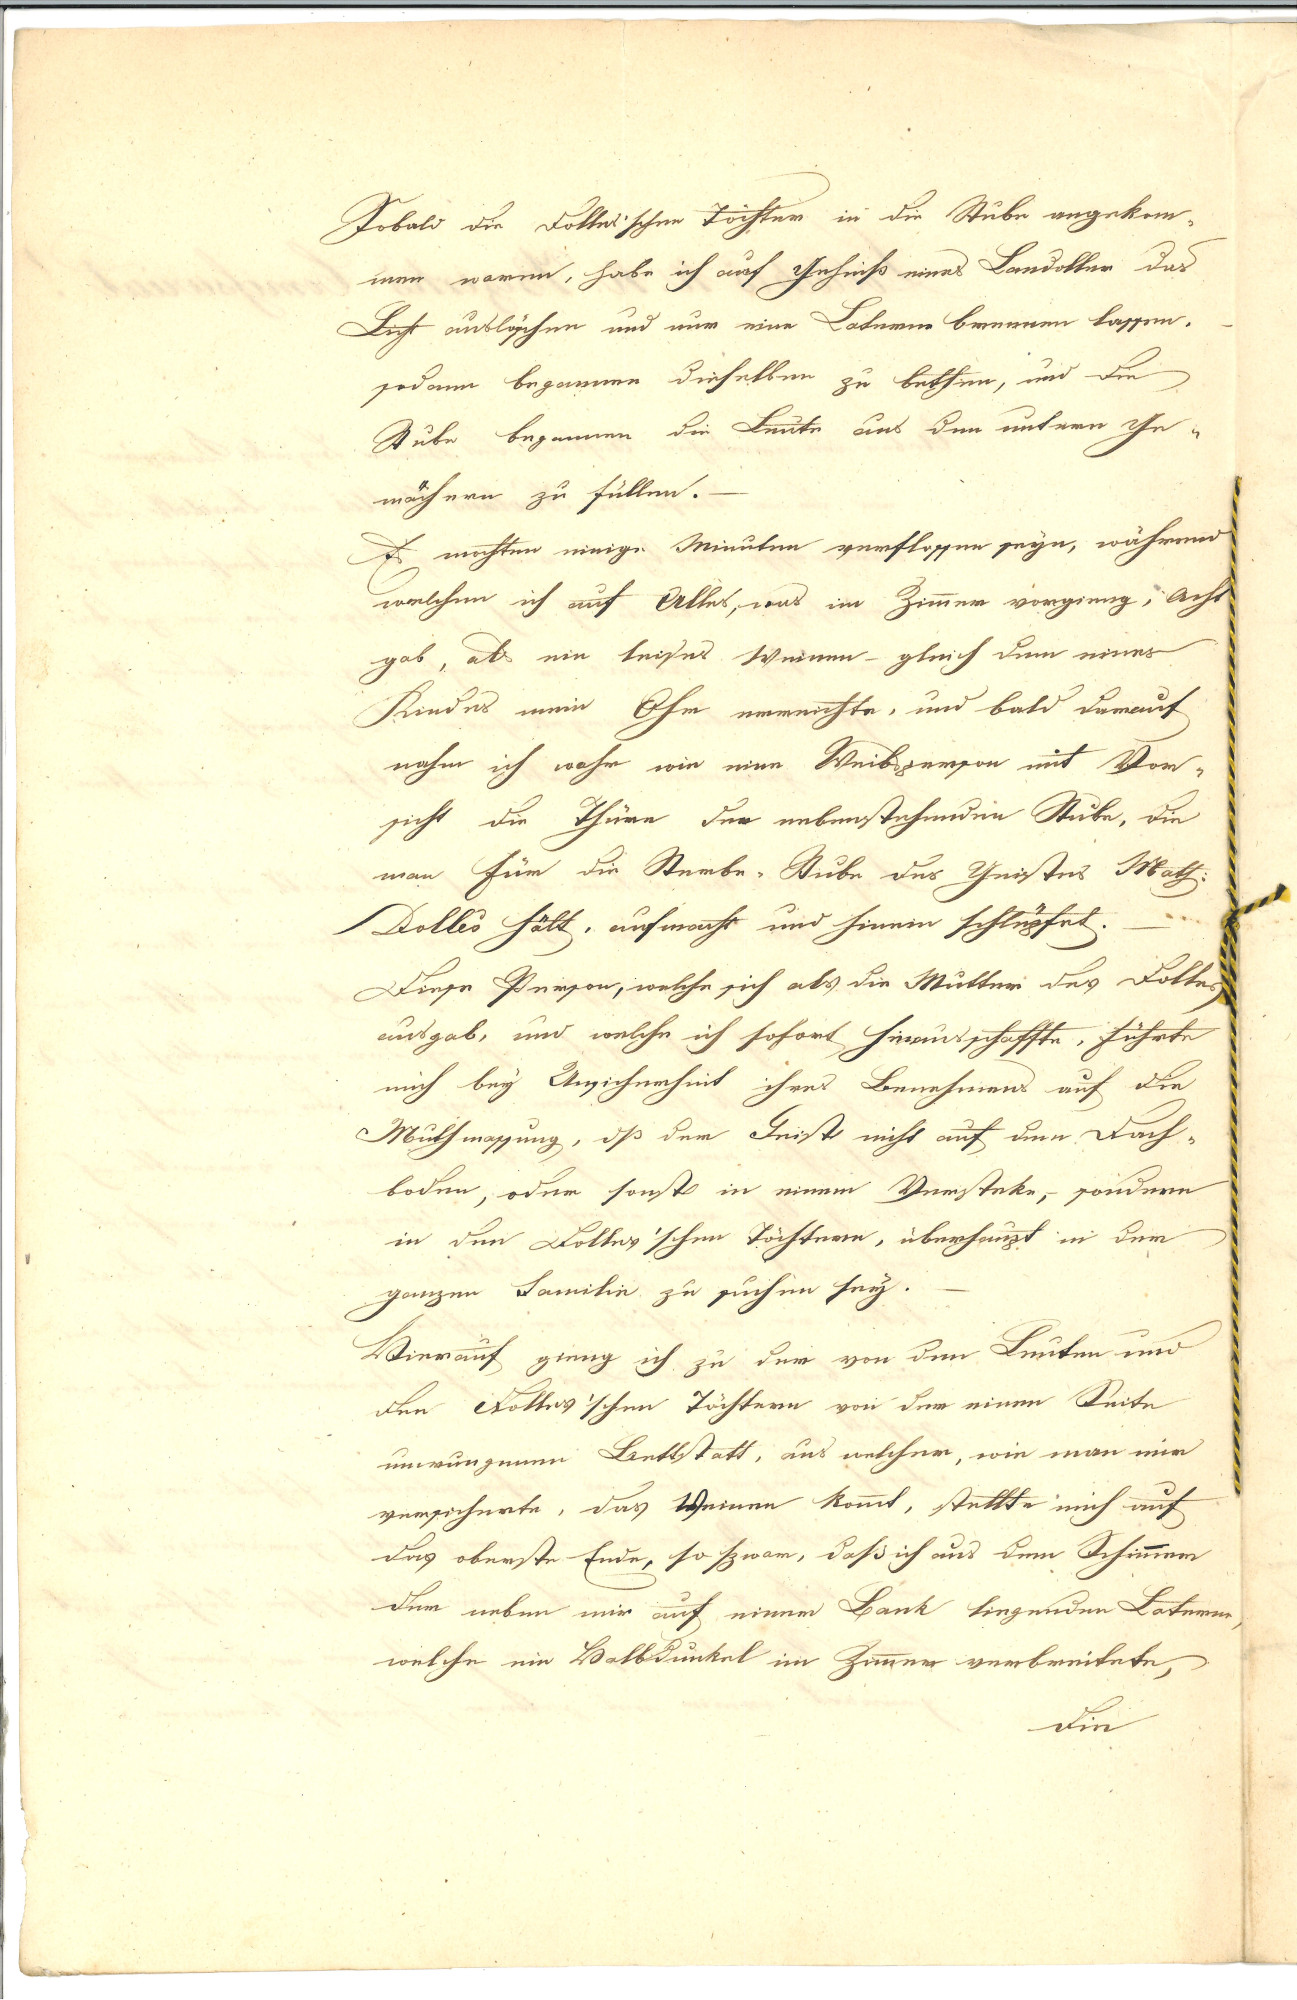 Sobald die Dolles'schen Töchter in die Stube angekom-
men waren, habe ich auf Geheiß eines Landoller das
Licht auslöschen und nur eine Laterne brennen lassen.
sodann begannen dieselben zu bethen, und die
Stube begannen die Leute aus den untern Ge-
mächern zu füllen. —
Es mochten einige Minuten verflossen seyn, während
welchen ich auf Alles, was im Zimmer vorgieng, Acht
gab, als ein leises Weinen – gleich dem eines
Kindes mein Ohr erreichte, und bald darauf
nahm ich wahr wie eine Weibsperson mit Vor-
sicht die Thüre der nebenstehenden Stube, die
man für die Sterbe-Stube des Geistes Math:
Dolles hält, aufmacht und hinein schlüpfet. —
Diese Person, welche sich als die Mutter des Dolles
ausgab, und welche ich sofort hinausschaffte, führte
mich bey Unsicherheit ihres Benehmens auf die
Muthmassung, dß der Geist nicht auf dem Dach-
boden, oder sonst in einem Versteke, sondern
in den Dolles'schen Töchtern, überhaupt in der
ganzen Familie zu suchen sey. —
Hierauf gieng ich zu der von den Leuten und
den Dolles'schen Töchtern von der einen Seite
umrungenen Bettstatt, aus welcher, wie man mir
versicherte, das Weinen kom̅t, stellte mich auf
das oberste Ende, so zwar, daß ich aus dem Schim̅er
der neben mir auf einer Bank liegenden Laterne,
welche ein Halbdunkel im Zim̅er verbreitete,
die